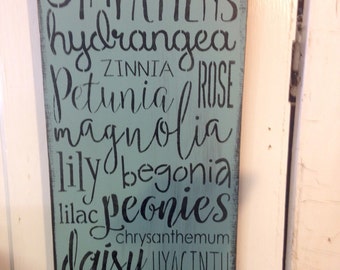 IMPATIENS
hydrangea
ZINNIA
Petunia ROSE
magnolia
lily begonia
lilac peonies
chrysanthemum
daisy HYACINTH